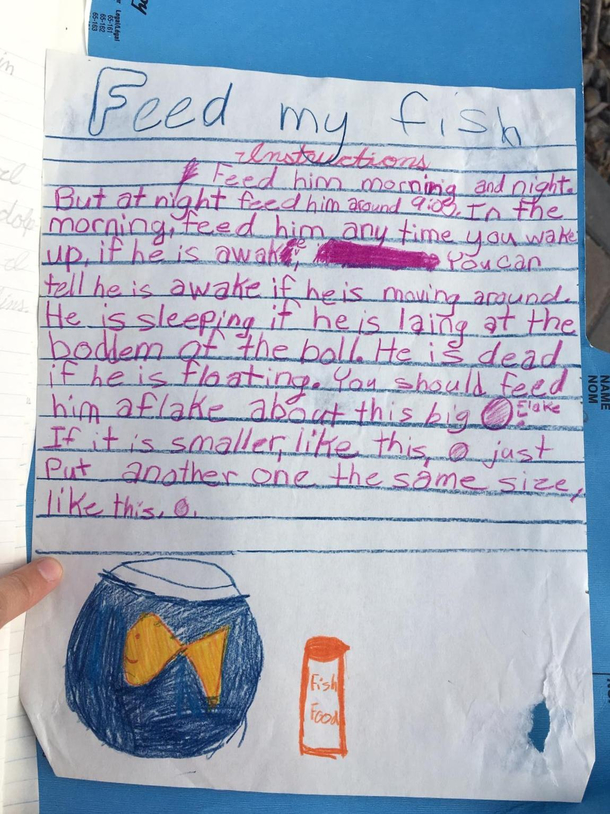 Feed my fish
Instructions
Feed him morning and night.
But at night feed him around 9:00. In the
morning, feed him any time you wake
up, if he is awake, You can
tell he is awake if he is moving around.
He is sleeping if he is laing at the
boddem of the boll. He is dead
if he is floating. You should feed
him a flake about this big Flake
If it is smaller, like this, just
Put another one the same size,
like this, .
Fish
Food
NAME
NOM
Legal/Légal
65-161
65-162
65-163